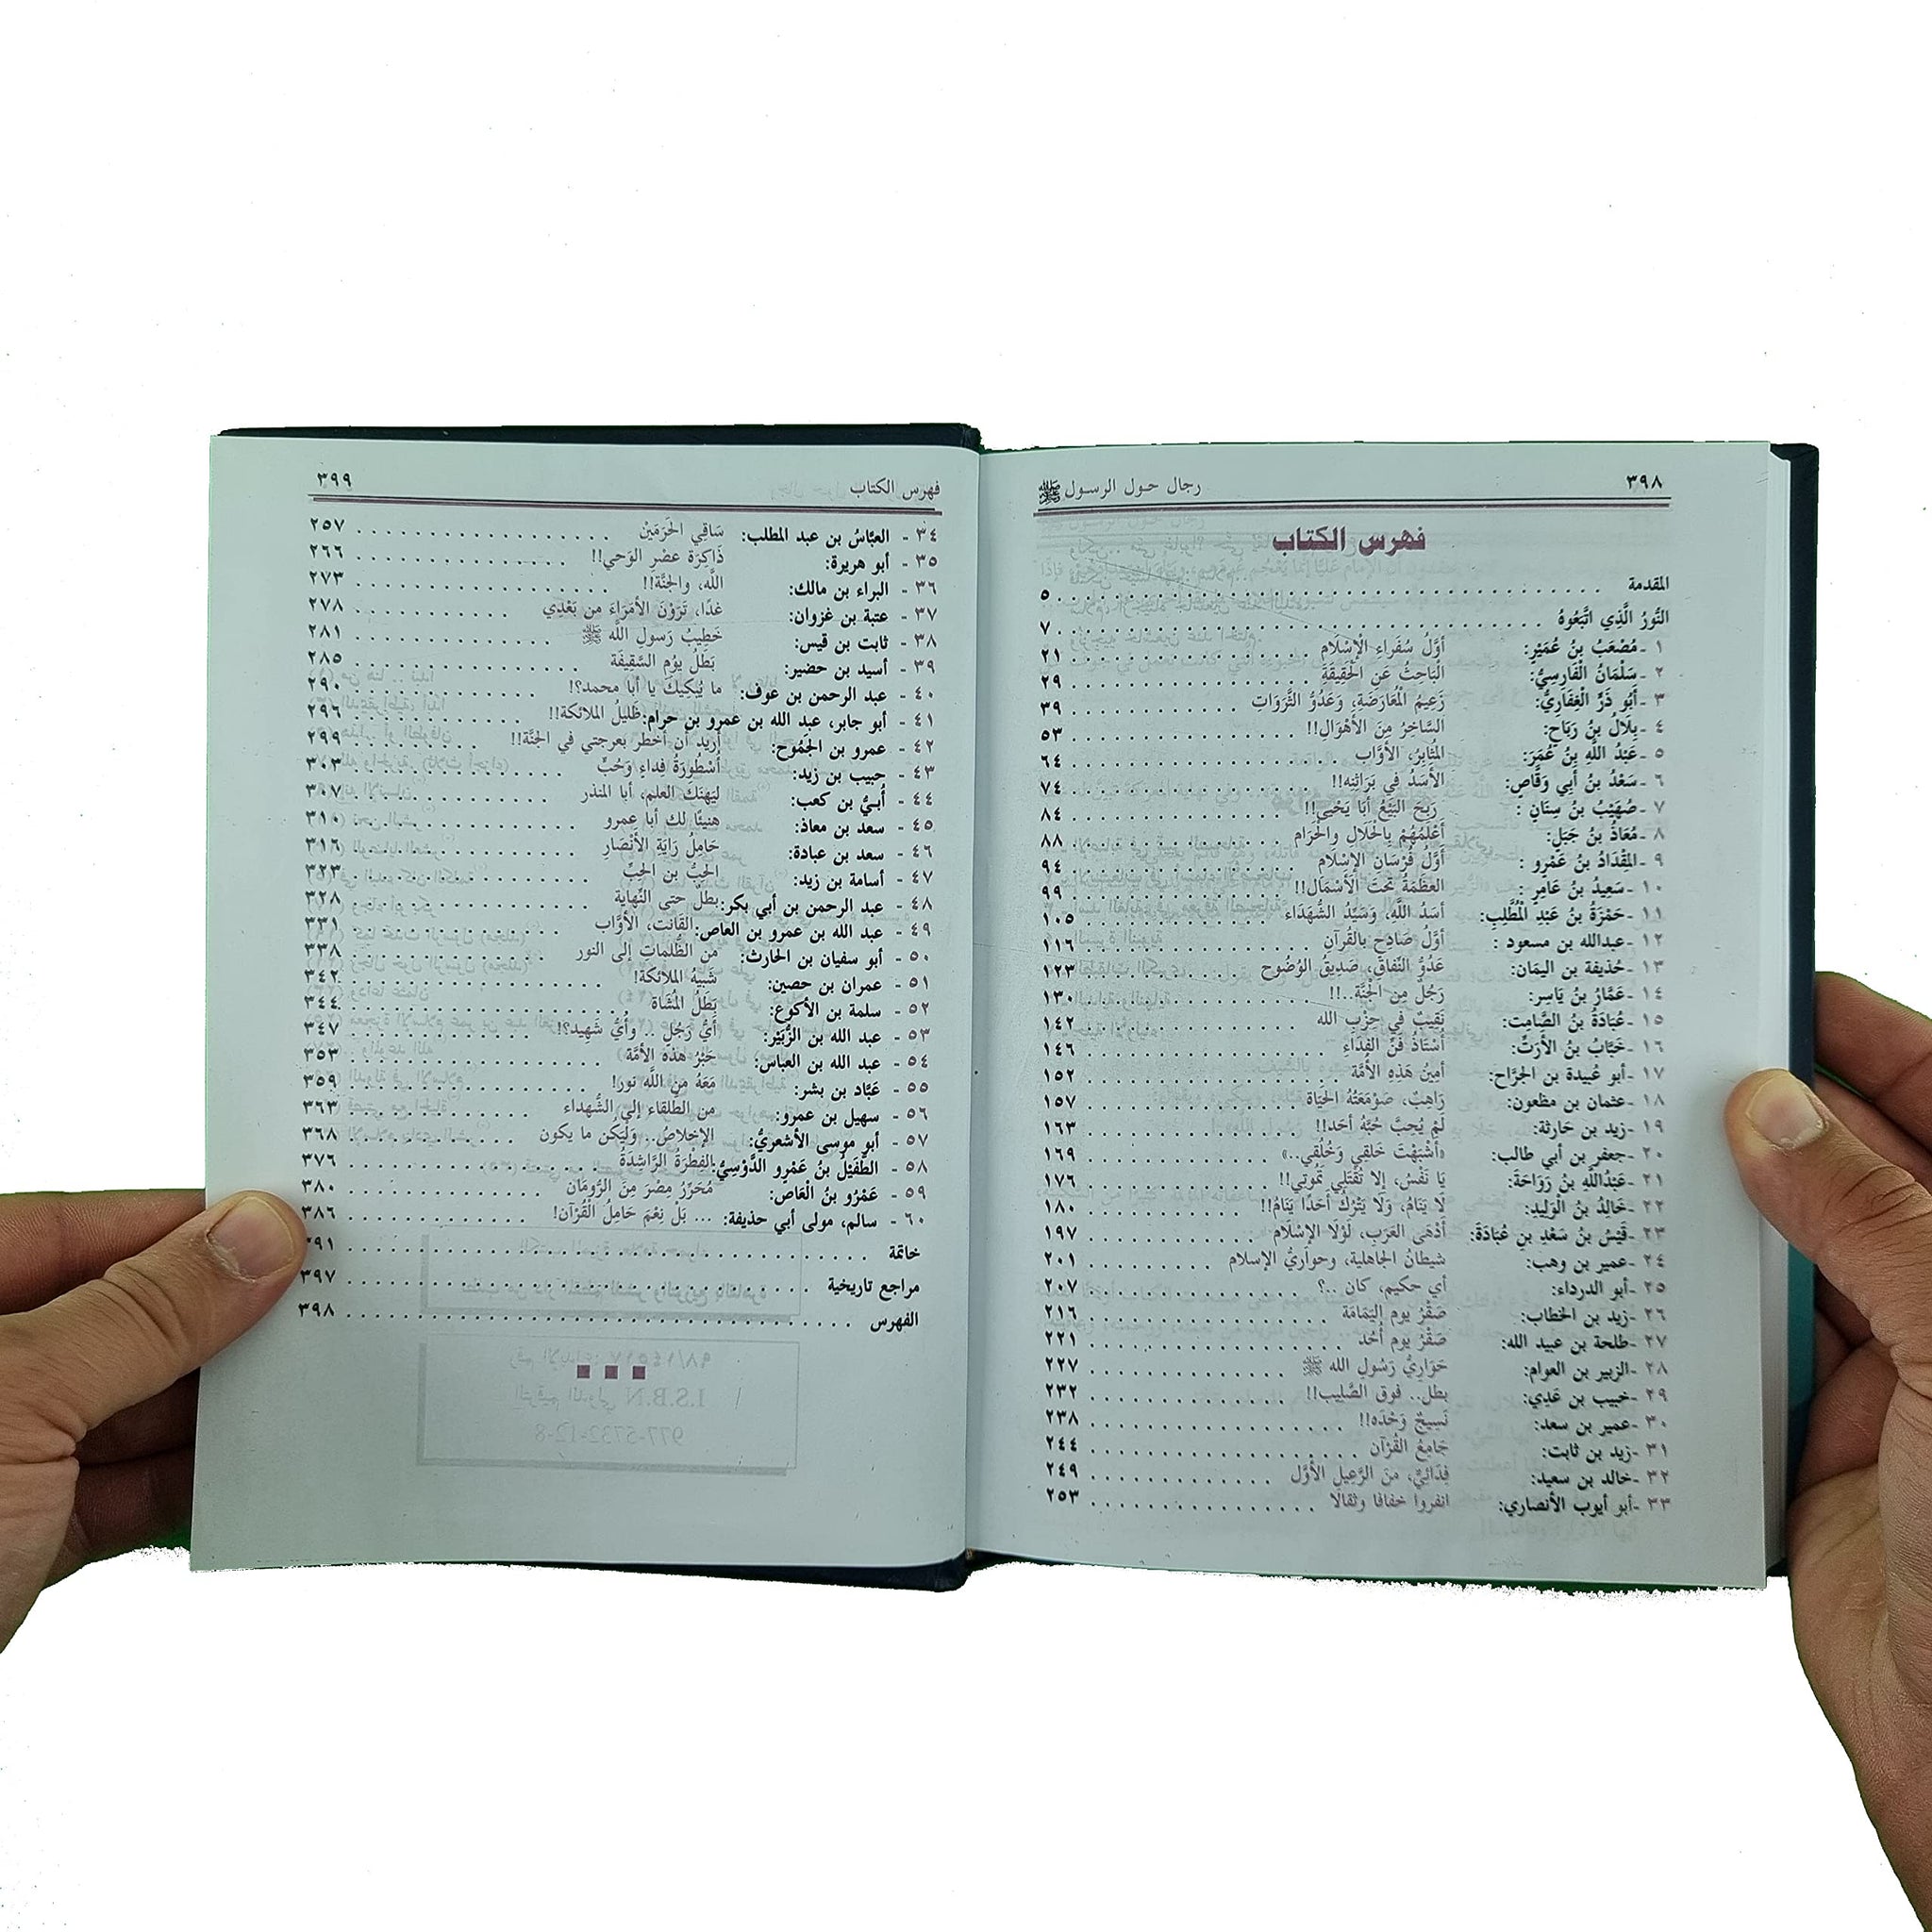 ٣٩٨ رجال حول الرسول ﷺ
فهرس الكتاب
المقدمة . . . . ٥
النُّورُ الَّذِي اتَّبَعُوهُ . . . . ٧
١ -مُصْعَبُ بنُ عُمَيْرٍ: أوَّلُ سُفَراءِ الْإسْلَام . . . . ٢١
٢ -سَلْمَانُ الْفَارِسِيُّ: الْبَاحِثُ عَنِ الْحَقِيقَةِ . . . . ٢٩
٣ -أَبُو ذَرٍّ الْغِفَارِيُّ: زَعِيمُ الْمُعَارَضَةِ، وَعَدُوُّ الثَّرَوَاتِ . . . . ٣٩
٤ -بِلَالُ بنُ رَبَاح: السَّاخِرُ مِنَ الْأهْوَالِ!! . . . . ٥٣
٥ -عَبْدُ اللَّهِ بنُ عُمَرَ: المُثابِرُ، الأوَّاب . . . . ٦٤
٦ -سَعْدُ بنُ أبي وَقَّاصٍ: الأَسَدُ في بَرَاثِنِه!! . . . . ٧٤
٧ -صُهَيْبُ بنُ سِنَانٍ : رَبِحَ البَيْعُ أبَا يَحْيى!! . . . . ٨٤
٨ -مُعَاذُ بنُ جَبَلٍ: أَعْلَمُهُمْ بِالْحَلَالِ والْحَرَام . . . . ٨٨
٩ -المِقْدَادُ بنُ عَمْرٍو : أوَّلُ فُرْسَانِ الإسْلَام . . . . ٩٤
١٠ -سَعِيدُ بنُ عَامِرٍ : العَظَمَةُ تَحْتَ الْأَسْمَالِ!! . . . . ٩٩
١١ -حَمْزَةُ بنُ عَبْدِ الْمُطَّلِبِ: أسَدُ اللَّهِ، وَسَيِّدُ الشُّهَدَاء . . . . ١٠٥
١٢ -عبدالله بن مسعود : أوَّلُ صَادِحٍ بالقُرآن . . . . ١١٦
١٣ -حُذيفة بن اليمَان: عَدُوُّ النِّفاقِ، صَدِيقُ الوُضُوح . . . . ١٢٣
١٤ -عَمَّارُ بنُ يَاسِر: رَجُلٌ مِن الْجَنَّة..!! . . . . ١٣٠
١٥ -عُبَادَةُ بنُ الصَّامِت: نَقِيبٌ في حِزْبِ الله . . . . ١٤٢
١٦ -خَبَّابُ بنُ الأرَتِّ: أُسْتَاذُ فَنِّ الفِدَاء . . . . ١٤٦
١٧ -أبو عُبيدة بن الجَرَّاح: أمِينُ هَذِهِ الأُمَّة . . . . ١٥٢
١٨ -عثمان بن مظعون: رَاهِبٌ، صَوْمَعَتُهُ الحَيَاة . . . . ١٥٧
١٩ -زيد بن حَارثة: لَمْ يُحِبَّ حُبَّهُ أحَد!! . . . . ١٦٣
٢٠ -جعفر بن أبي طالب: «أشْبَهْتَ خَلقِي وَخُلُقِي..» . . . . ١٦٩
٢١ -عَبْدُاللَّهِ بنُ رَوَاحَةَ: يَا نَفْسُ، إلا تُقْتَلِي تَمُوتي!! . . . . ١٧٦
٢٢ -خَالِدُ بنُ الْوَلِيدِ: لَا يَنَامُ، وَلَا يَتْرُكُ أحَدًا يَنَامُ!! . . . . ١٨٠
٢٣ -قَيْسُ بنُ سَعْدِ بنِ عُبَادَةَ: أَدْهَى العَرَبِ، لَوْلَا الإسْلَام . . . . ١٩٧
٢٤ -عمير بن وهب: شيطانُ الجاهلية، وحواريُّ الإسلام . . . . ٢٠١
٢٥ -أبو الدرداء: أي حكيم، كان ..؟ . . . . ٢٠٧
٢٦ -زيد بن الخطاب: صَقْرُ يوم اليَمَامَة . . . . ٢١٦
٢٧ -طلحة بن عبيد الله: صَقْرُ يوم أُحُد . . . . ٢٢١
٢٨ -الزبير بن العوام: حَوَارِيُّ رَسُولِ الله ﷺ . . . . ٢٢٧
٢٩ -خبيب بن عَدِي: بطل.. فوق الصَّليب!! . . . . ٢٣٢
٣٠ -عمير بن سعد: نَسِيجٌ وَحْدَه!! . . . . ٢٣٨
٣١ -زيد بن ثابت: جَامِعُ القُرْآن . . . . ٢٤٤
٣٢ -خالد بن سعيد: فِدَائِيٌّ، منَ الرَّعِيلِ الأوَّل . . . . ٢٤٩
٣٣ -أبو أيوب الأنصاري: انفروا خفافا وثقالا . . . . ٢٥٣
فهرس الكتاب ٣٩٩
٣٤ - العبَّاسُ بن عبد المطلب: سَاقِي الحَرَمَيْن . . . . ٢٥٧
٣٥ - أبو هريرة: ذَاكِرَة عصْرِ الوَحي!! . . . . ٢٦٦
٣٦ - البراء بن مالك: اللَّه، والجنَّة!! . . . . ٢٧٣
٣٧ - عتبة بن غزوان: غدًا، تَرَوْنَ الأمَرَاءَ من بَعْدِي . . . . ٢٧٨
٣٨ - ثابت بن قيس: خَطِيبُ رَسولِ اللَّه ﷺ . . . . ٢٨١
٣٩ - أسيد بن حضير: بَطلُ يوْمِ السَّقِيفَة . . . . ٢٨٥
٤٠ - عبد الرحمن بن عوف: ما يُبْكِيكَ يا أبا محمد؟! . . . . ٢٩٠
٤١ - أبو جابر، عبد الله بن عمرو بن حرام: ظَليلُ الملائكة!! . . . . ٢٩٦
٤٢ - عمرو بن الجَمُوح: أريد أن أخطر بعرجتي في الجنَّة!! . . . . ٢٩٩
٤٣ - حبيب بن زيد: أُسْطُورَةُ فِداءٍ وَحُبٍّ . . . . ٣٠٣
٤٤ - أُبيُّ بن كعب: ليَهنَك العلم، أبا المنذر . . . . ٣٠٧
٤٥ - سعد بن معاذ: هنيئًا لك أبا عمرو . . . . ٣١٠
٤٦ - سعد بن عبادة: حَامِلُ رَايَةِ الأنْصَارِ . . . . ٣١٦
٤٧ - أسامة بن زيد: الحِبُّ بن الحِبِّ . . . . ٣٢٣
٤٨ - عبد الرحمن بن أبي بكر: بطلٌ حتى النِّهاية . . . . ٣٢٨
٤٩ - عبد الله بن عمرو بن العاص: القَانت، الأوَّاب . . . . ٣٣١
٥٠ - أبو سفيان بن الحارث: من الظُّلماتِ إلى النور . . . . ٣٣٨
٥١ - عمران بن حصين: شَبيهُ الملائكة! . . . . ٣٤٢
٥٢ - سلمة بن الأكوع: بَطَلُ المُشَاة . . . . ٣٤٤
٥٣ - عبد الله بن الزُّبَيْر: أيُّ رَجُلٍ .. وأيُّ شَهِيد؟! . . . . ٣٤٧
٥٤ - عبد الله بن العباس: حَبْرُ هذه الأمَّة . . . . ٣٥٣
٥٥ - عَبَّاد بن بشر: مَعَهُ منَ اللَّه نور! . . . . ٣٥٩
٥٦ - سهيل بن عمرو: من الطُّلقاء إلى الشُّهداء . . . . ٣٦٣
٥٧ - أبو موسى الأشعريُّ: الإخلاصُ.. وَلْيَكُن ما يكون . . . . ٣٦٨
٥٨ - الطُّفَيْلُ بنُ عَمْرٍو الدَّوْسِيُّ: الفِطْرَةُ الرَّاشِدَةُ . . . . ٣٧٦
٥٩ - عَمْرُو بنُ الْعَاص: مُحَرِّرُ مِصْرَ مِنَ الرُّومَان . . . . ٣٨٠
٦٠ - سالم، مولى أبي حذيفة: ... بَلْ نِعْمَ حَامِلُ الْقُرْآن! . . . . ٣٨٦
خاتمة . . . . ٣٩١
مراجع تاريخية . . . . ٣٩٧
الفهرس . . . . ٣٩٨